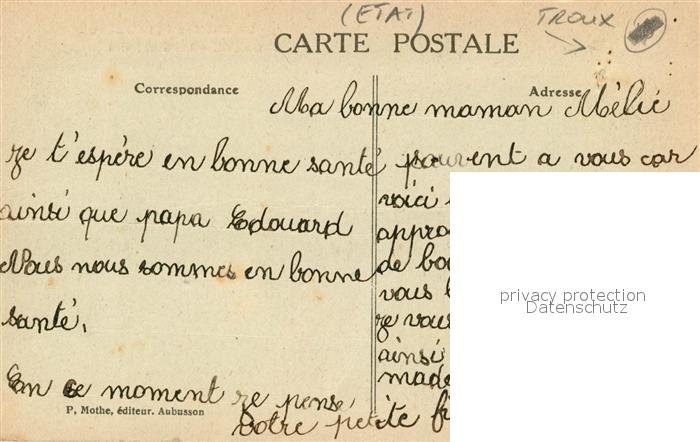 (ETAT) TROUX
CARTE POSTALE
Correspondance
Adresse
Ma bonne maman Mélie
je t'espère en bonne santé
ainsi que papa Edouard
Nous nous sommes en bonne
santé.
En ce moment je pense
souvent a vous car
voici
appro
de bo
vous
je vous
ainsi
made
Votre petite fi
P. Mothe, éditeur. Aubusson
privacy protection
Datenschutz